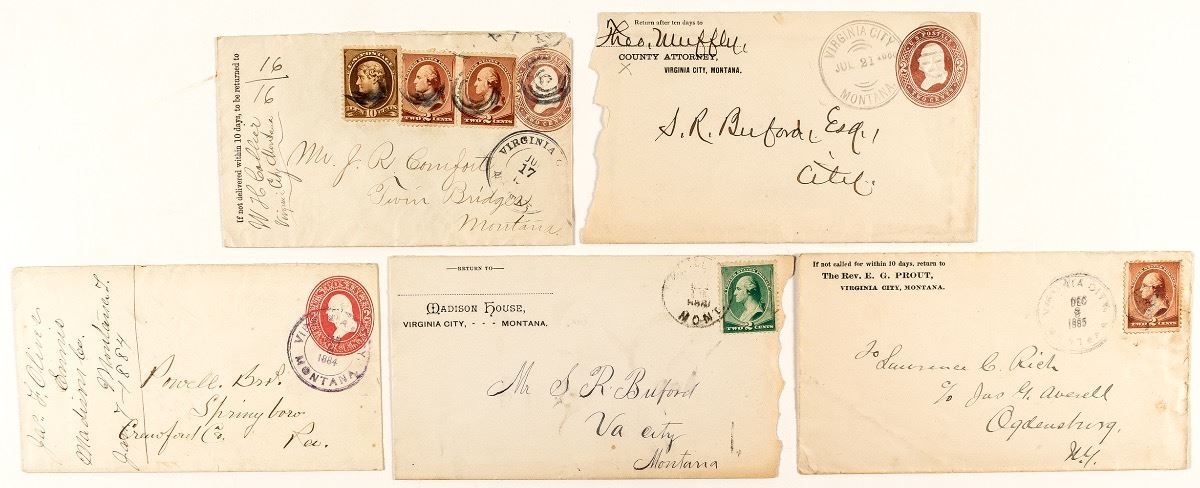 If not delivered within 10 days, to be returned to
16
16
W H Collier
Virginia City Montana
U.S. POSTAGE
10 CENTS
TWO 2 CENTS
TWO 2 CENTS
TWO CENTS
VIRGINIA
17
Mr. J. R. Comfort
Twin Bridges
Montana.
Return after ten days to
Theo. Muffly.
COUNTY ATTORNEY,
X
VIRGINIA CITY, MONTANA.
VIRGINIA CITY
JUL 21
MONTANA
U.S. POSTAGE
TWO CENTS
S. R. Buford, Esq.,
City.
Ennis
Madison Co.
Montana T.
1884
1884
MONTANA
Powell Bro.
Springboro
Crawford Co.
Pa.
RETURN TO
MADISON HOUSE,
VIRGINIA CITY, - - - MONTANA.
MONT
TWO 2 CENTS
Mr S. R. Buford
Va city
Montana
If not called for within 10 days, return to
The Rev. E. G. PROUT,
VIRGINIA CITY, MONTANA.
VIRGINIA CITY
DEC
1885
TWO 2 CENTS
To Lawrence C. Rich
c/o Jas G. Averell
Ogdensburg,
N.Y.